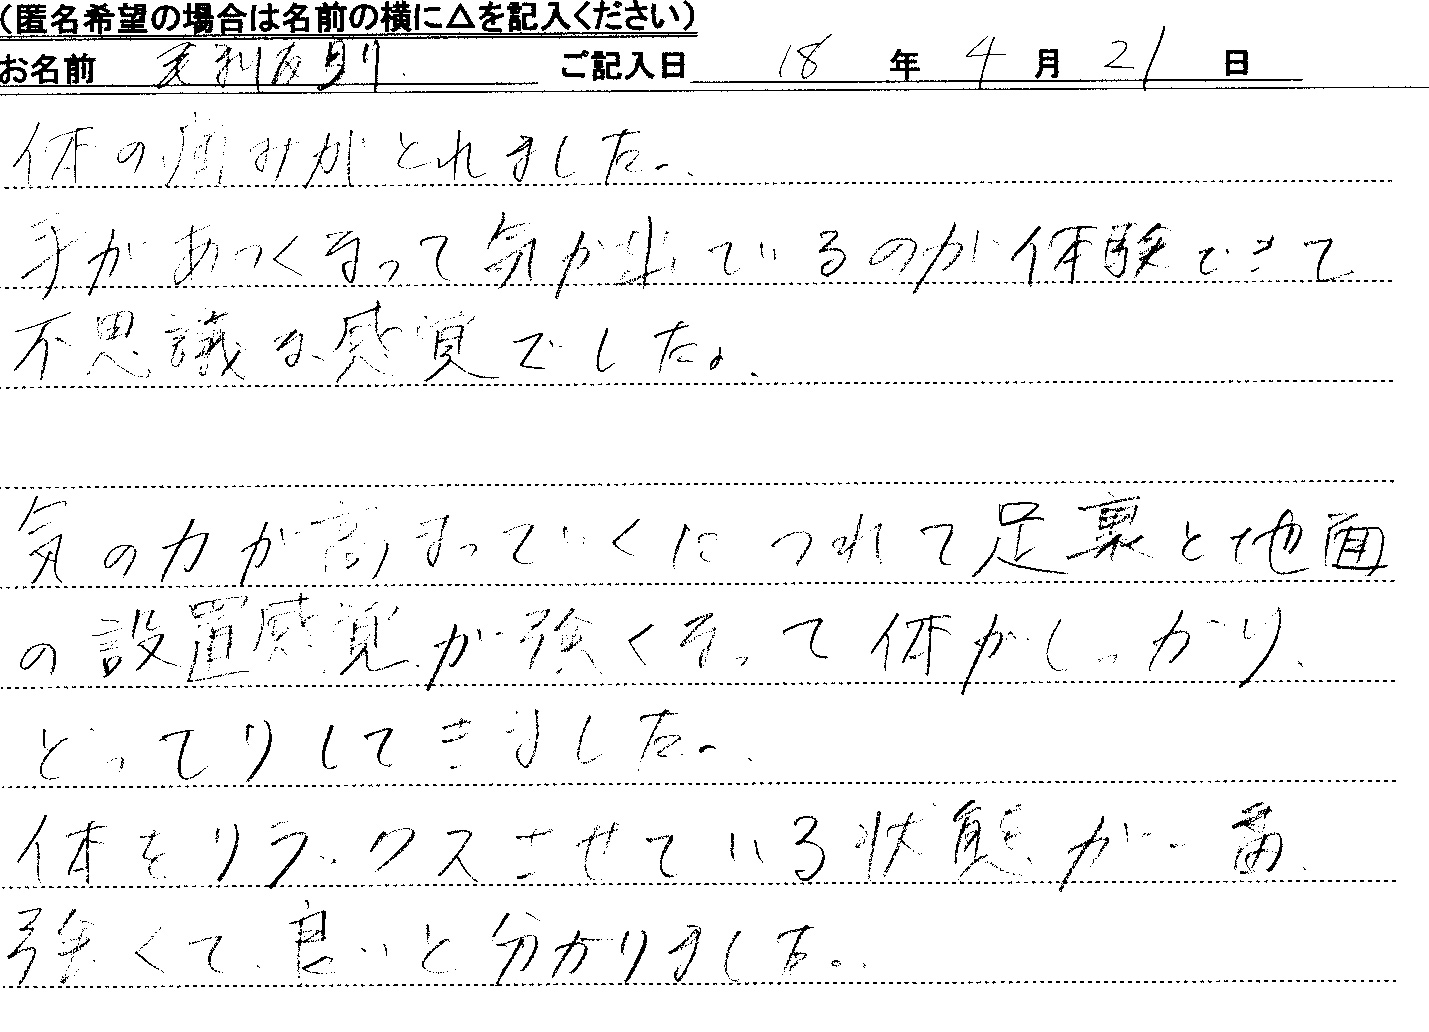 (匿名希望の場合は名前の横に△を記入ください)
お名前 ご記入日 18 年 4 月 21 日
体の痛みがとれました。
手があつくなって気が出ているのが体験できて
不思議な感覚でした。
気の力が高まっていくにつれて足裏と地面
の設置感覚が強くなって体がしっかり
どってりしてきました。
体をリラックスさせている状態が一番
強くて良いと分かりました。